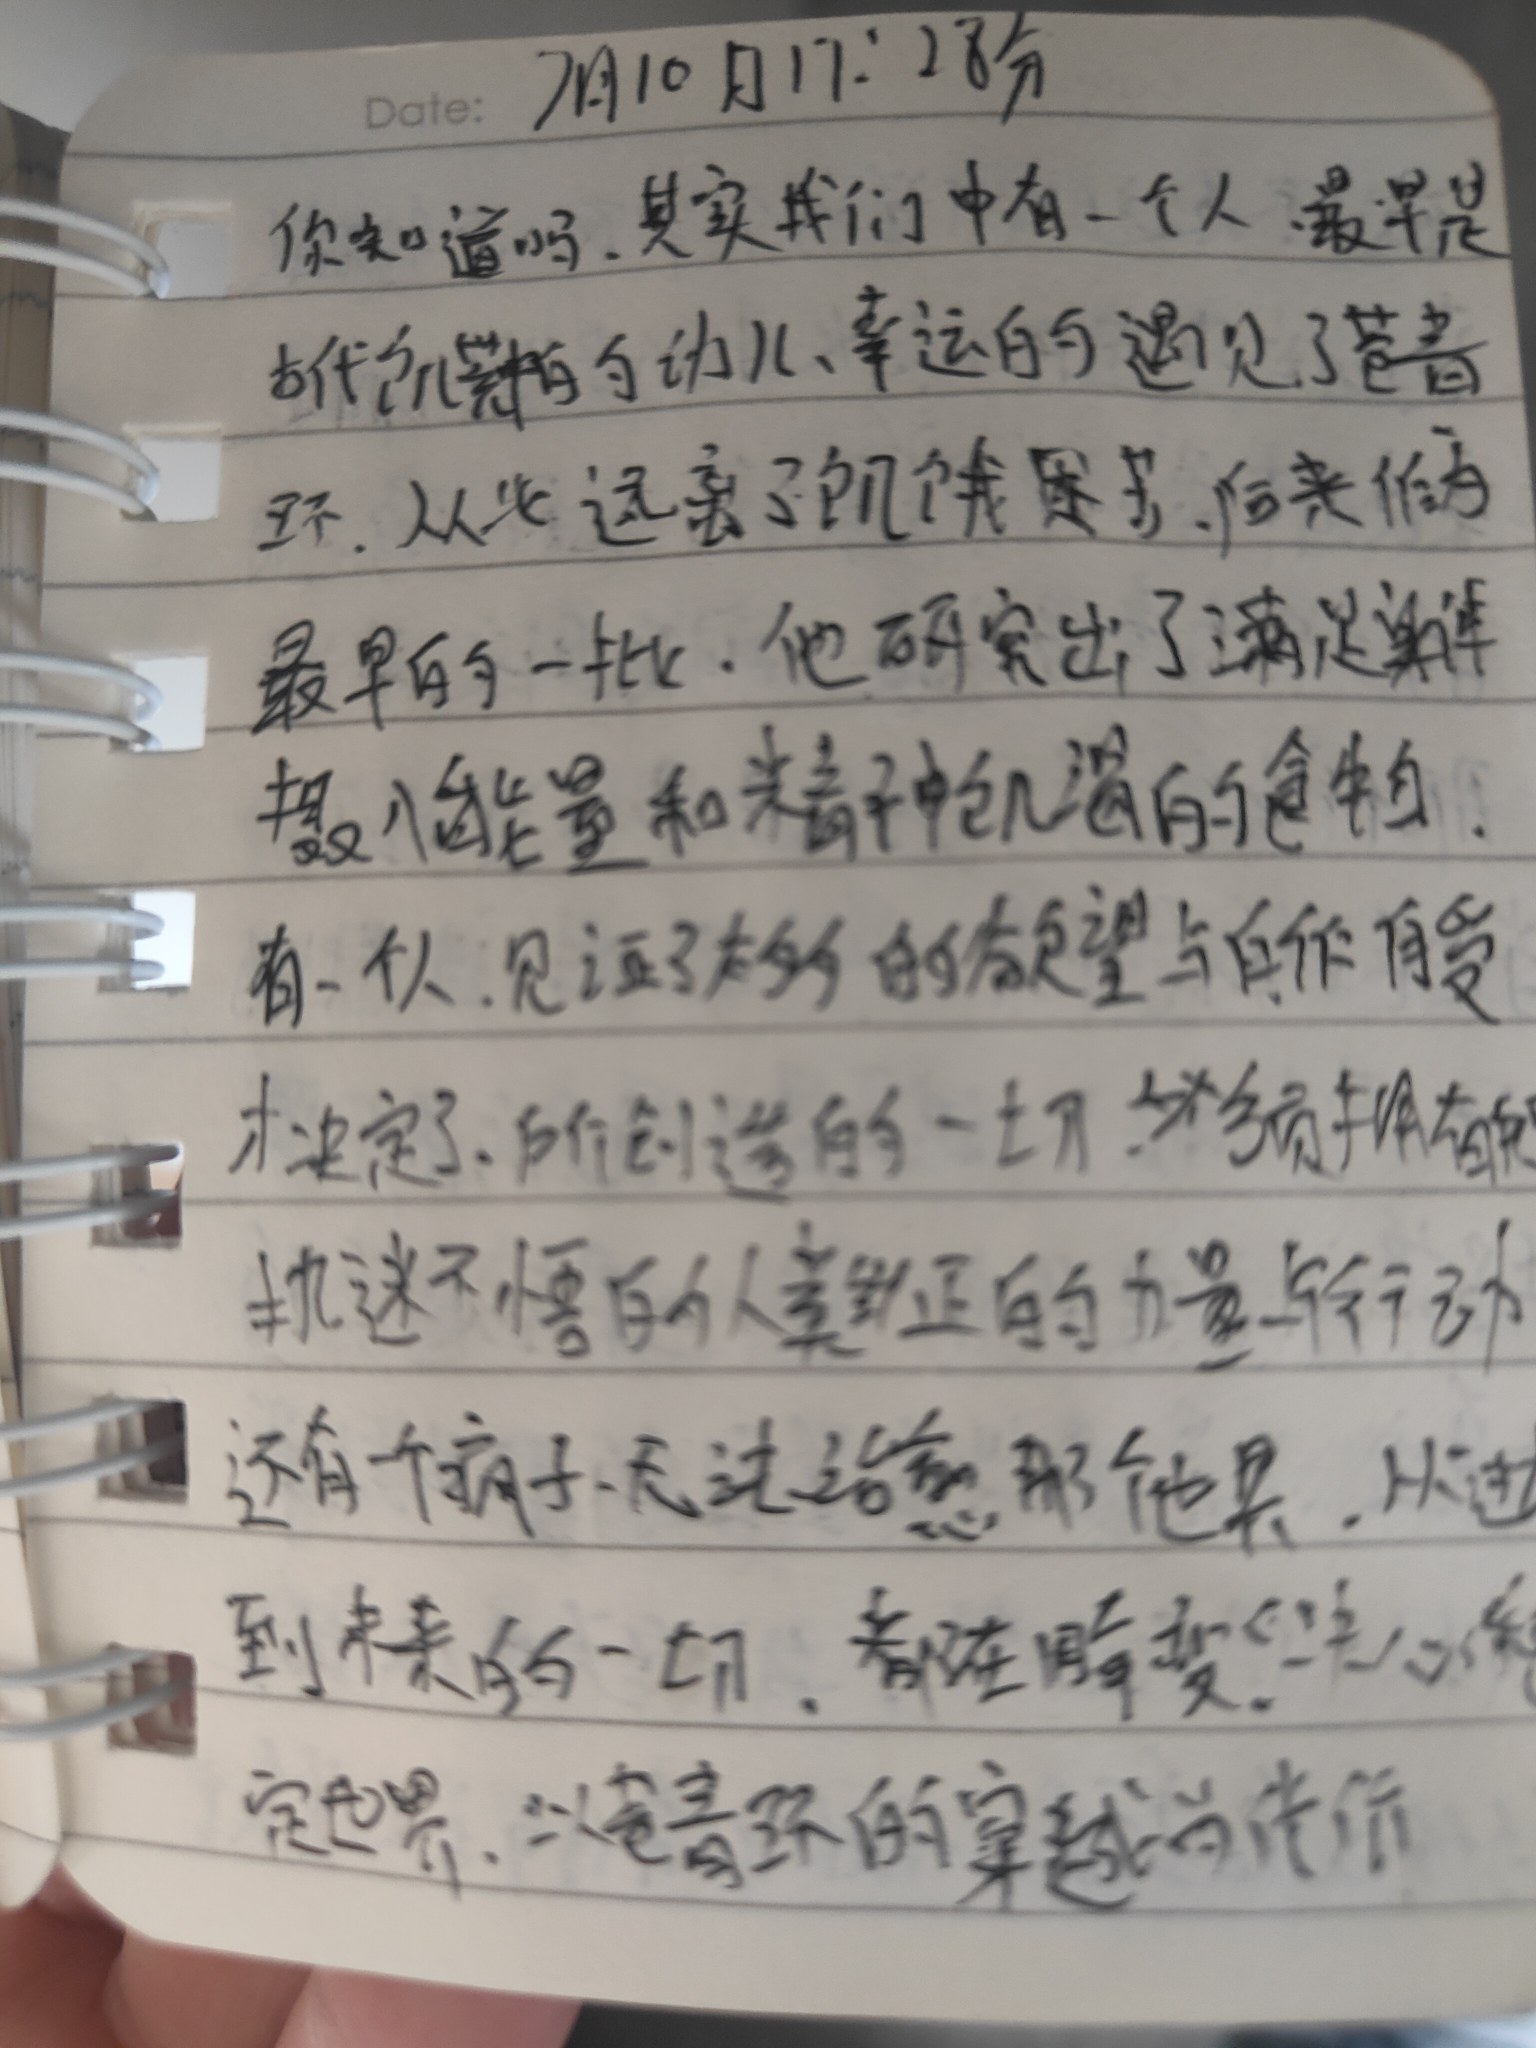 Date: 7月10日17:28分
你知道吗.其实我们中有一个人.最早是
古代饥荒的幼儿、幸运的遇见了苍青
环.从此远离了饥饿困苦.后来作为
最早的一批.他研究出了满足
摄入能量和精神饥渴的食物.
有一个人.见证了太多的欲望与自作自受
才决定了.所创造的一切.必须
执迷不悟的人 真正的力量与行动
还有一个疯子.无法治愈那个他是.从过
到未来的一切.都在
定世界.以苍青环的穿越为代价